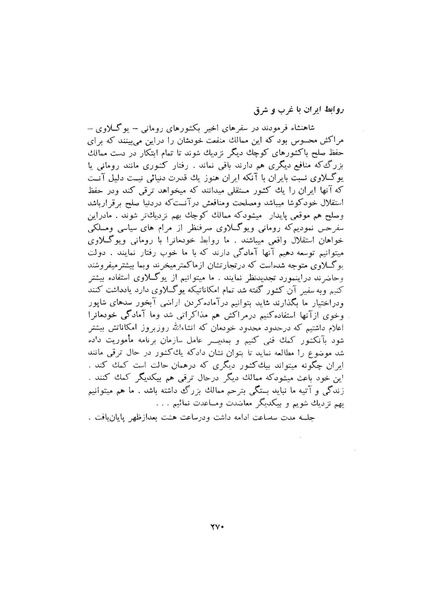 روابط ایران با غرب و شرق
شاهنشاه فرمودند در سفرهای اخیر بکشورهای رومانی – یوگسلاوی –
مراکش محسوس بود که این ممالک منفعت خودشان را دراین می‌بینند که برای
حفظ صلح باکشورهای کوچک دیگر نزدیک شوند تا تمام ابتکار در دست ممالک
بزرگ که منافع دیگری هم دارند باقی نماند . رفتار کشوری مانند رومانی یا
یوگسلاوی نسبت بایران با آنکه ایران هنوز یک قدرت دنیائی نیست دلیل آنست
که آنها ایران را یک کشور مستقلی میدانند که میخواهد ترقی کند ودر حفظ
استقلال خودکوشا میباشد ومصلحت ومنافعش درآنست‌که دردنیا صلح برقرارباشد
وصلح هم موقعی پایدار میشودکه ممالک کوچک بهم نزدیک‌تر شوند . مادراین
سفرحس نمودیم‌که رومانی ویوگسلاوی صرفنظر از مرام های سیاسی ومسلکی
خواهان استقلال واقعی میباشند . ما روابط خودمانرا با رومانی ویوگسلاوی
میتوانیم توسعه دهیم آنها آمادگی دارند که با ما خوب رفتار نمایند . دولت
یوگسلاوی متوجه شده‌است که درتجارتشان ازماکمترمیخرند وبما بیشترمیفروشند
وحاضرند دراینمورد تجدیدنظر نمایند . ما میتوانیم از یوگسلاوی استفاده بیشتر
کنیم وبه سفیر آن کشور گفته شد تمام امکاناتیکه یوگسلاوی دارد یادداشت کنند
ودراختیار ما بگذارند شاید بتوانیم درآماده‌کردن اراضی آبخور سدهای شاپور
وخوی ازآنها استفاده‌کنیم درمراکش هم مذاکراتی شد وما آمادگی خودمانرا
اعلام داشتیم که درحدود محدود خودمان که انشاءالله روزبروز امکاناتش بیشتر
شود بآنکشور کمک فنی کنیم و بمدیر عامل سازمان برنامه مأموریت داده
شد موضوع را مطالعه نماید تا بتوان نشان دادکه یک‌کشور در حال ترقی مانند
ایران چگونه میتواند بیک‌کشور دیگری که درهمان حالت است کمک کند .
این خود باعث میشودکه ممالک دیگر درحال ترقی هم بیکدیگر کمک کنند .
زندگی و آتیه ما نباید بستگی بترحم ممالک بزرگ داشته باشد . ما هم میتوانیم
بهم نزدیک شویم و بیکدیگر معاضدت ومساعدت نمائیم . . .
جلسه مدت سه‌ساعت ادامه داشت ودرساعت هشت بعدازظهر پایان‌یافت .
۲۷۰